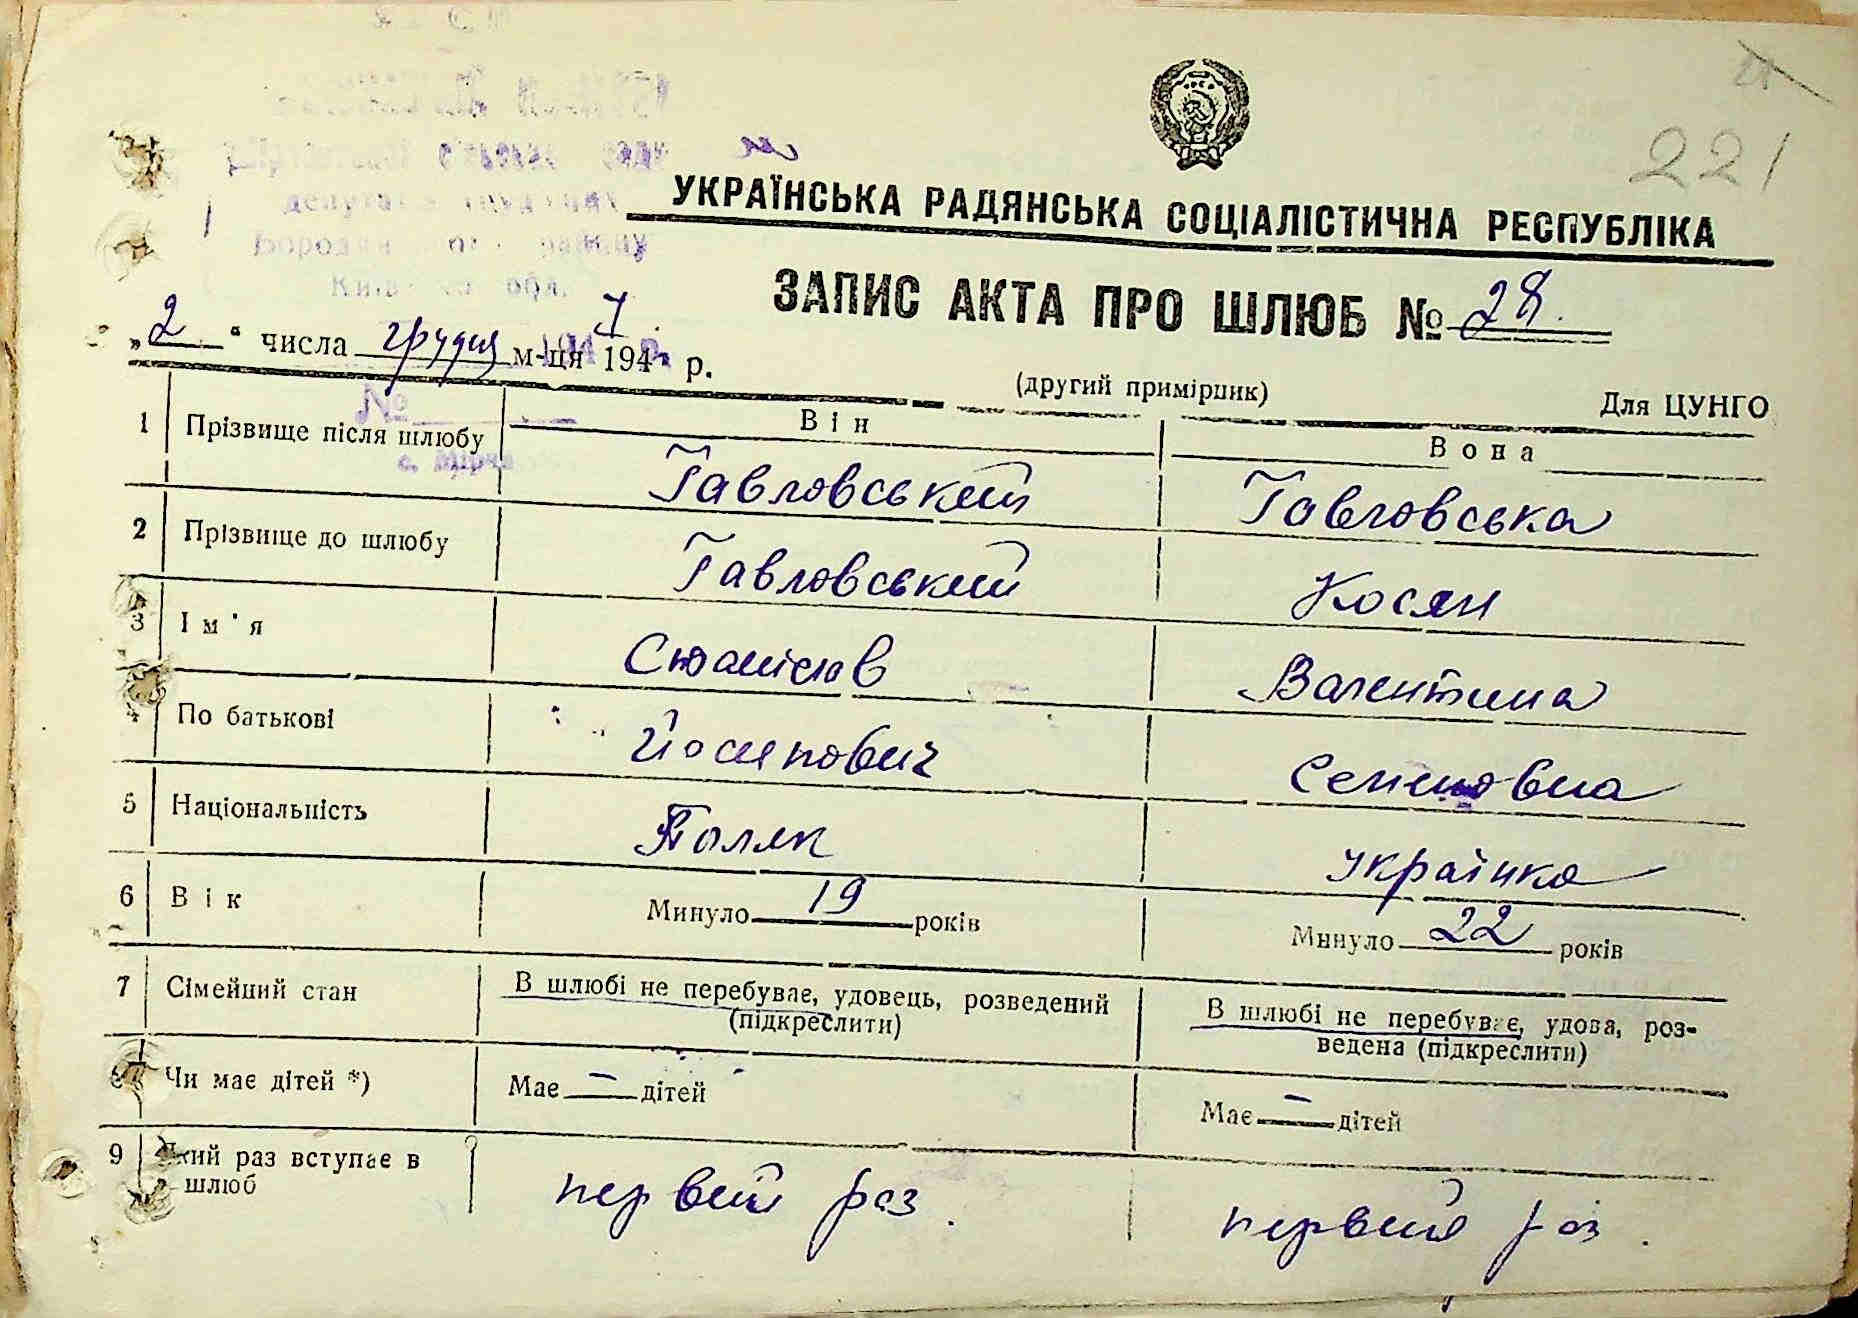 221
депутатів трудящих
УКРАЇНСЬКА РАДЯНСЬКА СОЦІАЛІСТИЧНА РЕСПУБЛІКА
району
обл.
ЗАПИС АКТА ПРО ШЛЮБ № 28.
„2“ числа грудня м-ця 1947 р.
(другий примірник) Для ЦУНГО
№
Він Вона
1 Прізвище після шлюбу Гавловський Гавловська
2 Прізвище до шлюбу Гавловський Косян
3 Ім'я Валентина
4 По батькові Йосипович Семеновна
5 Національність Поляк Українка
6 Вік Минуло 19 років Минуло 22 років
7 Сімейний стан В шлюбі не перебуває, удовець, розведений (підкреслити) В шлюбі не перебуває, удова, роз-
ведена (підкреслити)
8 Чи має дітей *) Має — дітей Має — дітей
9 Який раз вступає в шлюб первий раз. первий раз.